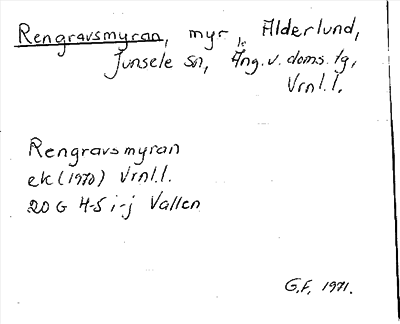 Rengravsmyran, myr, Älderlund,
Junsele sn, Ång. v. doms. lg,
Vrnl.l.
Rengravsmyran
ek (1970) Vrnl.l.
20 G 4-5 i-j Vallen
G.F. 1971.